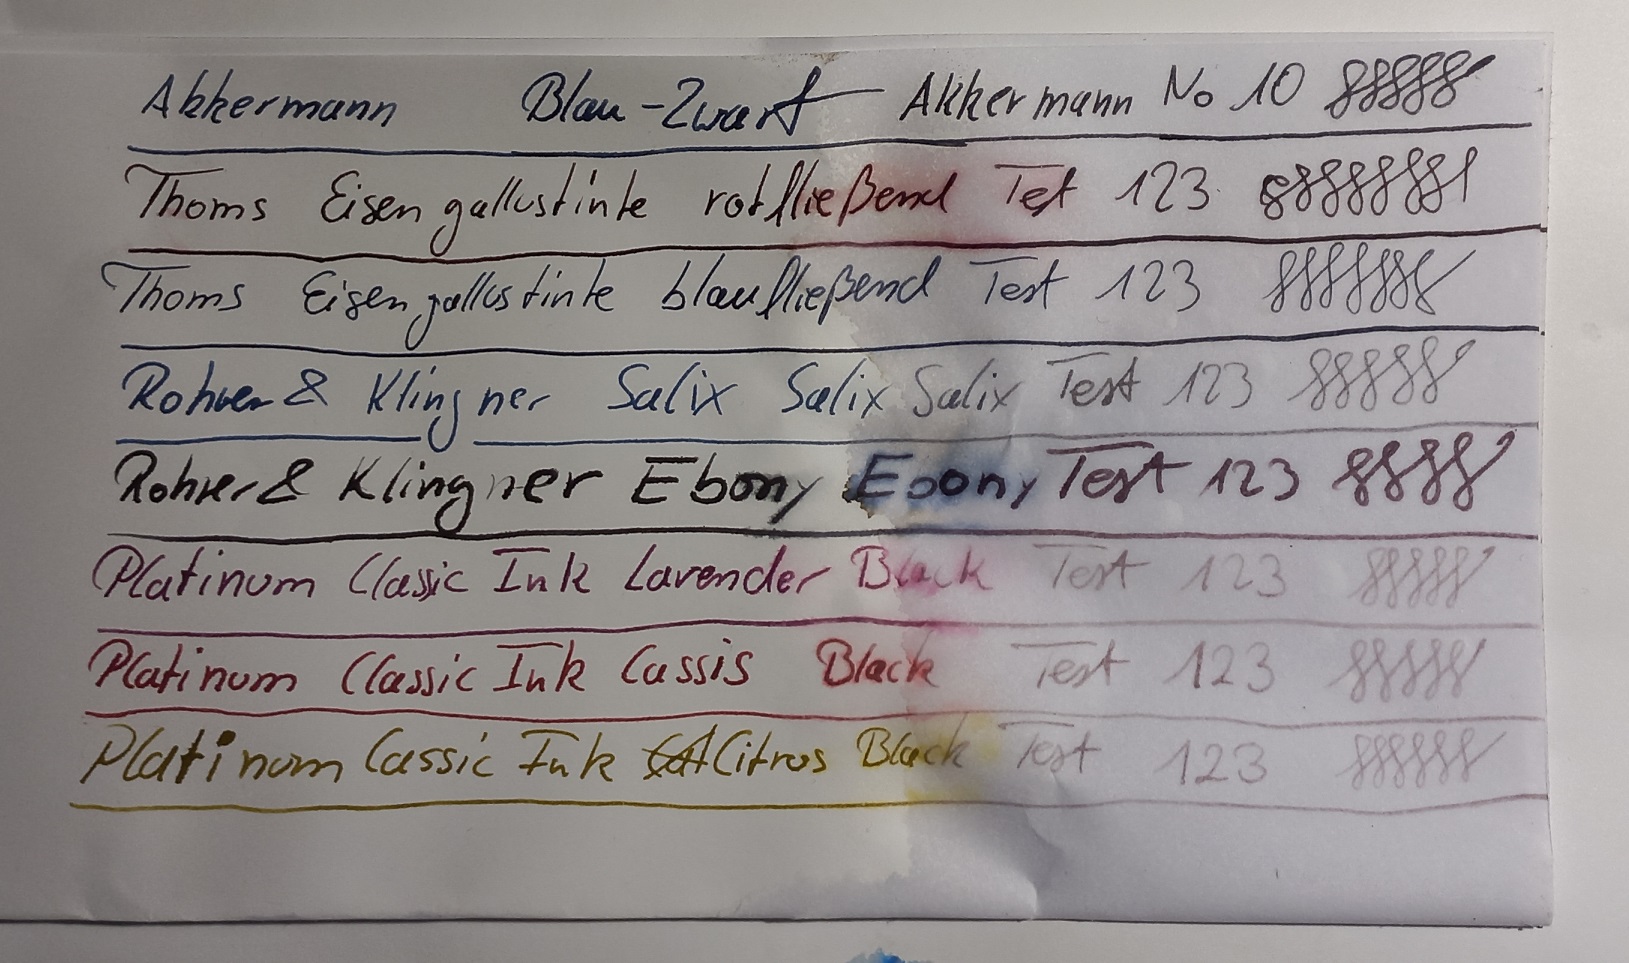 Akkermann Blau-Zwart Akkermann No 10
Thoms Eisengallustinte rotfließend Tet 123
Thoms Eisengallustinte blaufließend Test 123
Rohrer & Klingner Salix Salix Salix Test 123
Rohrer & Klingner Ebony Ebony Test 123
Platinum Classic Ink Lavender Black Test 123
Platinum Classic Ink Cassis Black Test 123
Platinum Cassic Ink Citrus Black Test 123